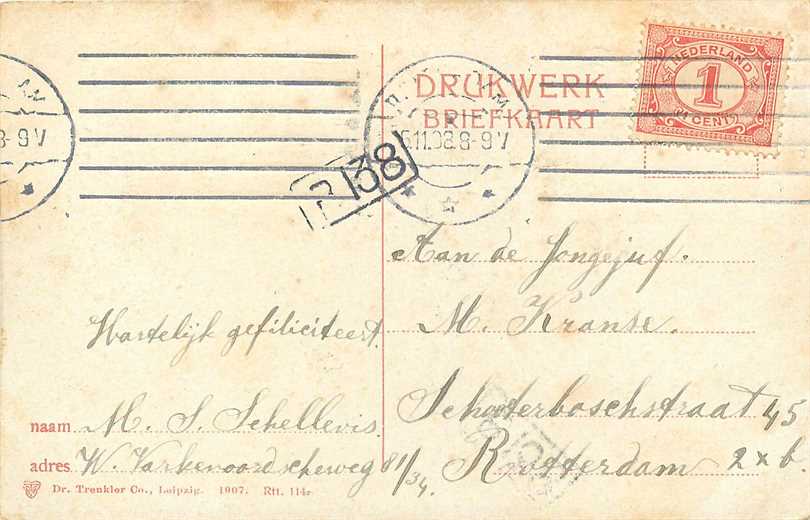 DRUKWERK
BRIEFKAART
NEDERLAND
1
1 CENT
11.08.8-9V
138
8-9V
Aan de Jongejuf.
M. Kranse.
Schooterboschstraat 45
Rotterdam 2 x b
Hartelijk gefiliciteert
naam M. S. Schellevis
adres W. Varkenoordscheweg 81/34.
Dr. Trenkler Co., Leipzig. 1907. Rtt. 114